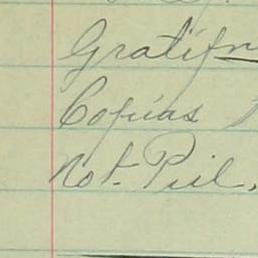 Gratifn
Copias
Not. Piil.